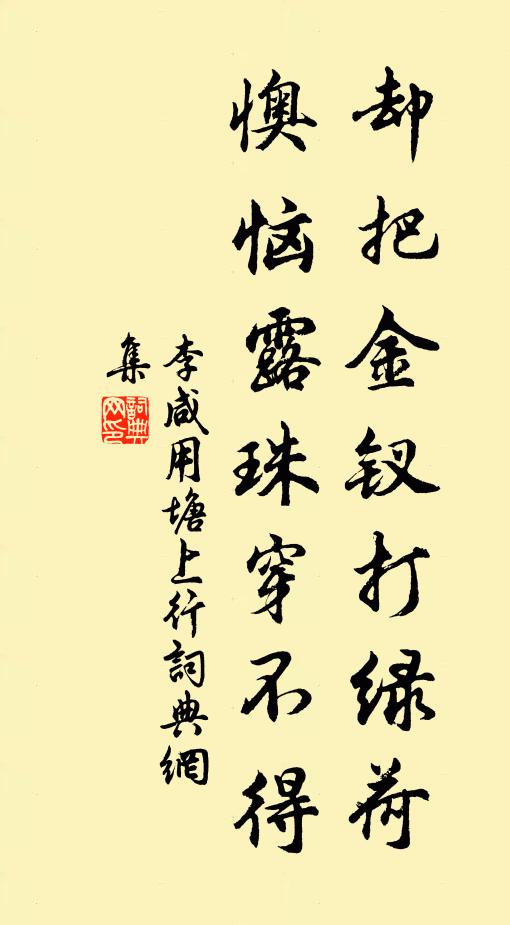 却把金钗打绿荷
懊恼露珠穿不得
李咸用塘上行詞典網
集
詞典
网印